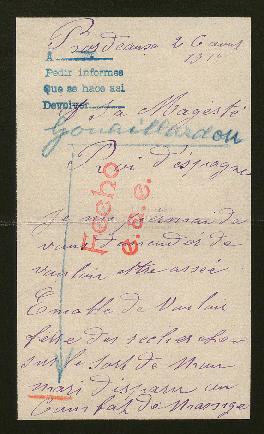 Bordeaux 26 avril
191
A
Pedir informes
Que se hace así
Devolver
Sa Magesté
Gouaillardou
Roi d'espagne
Fecho
e.a.e.
Je me permet de
vous demander de
vouloir être assé
émable de vouloir
fére des recherches
sur le sort de mon
mari disparu au
Combat de Massige